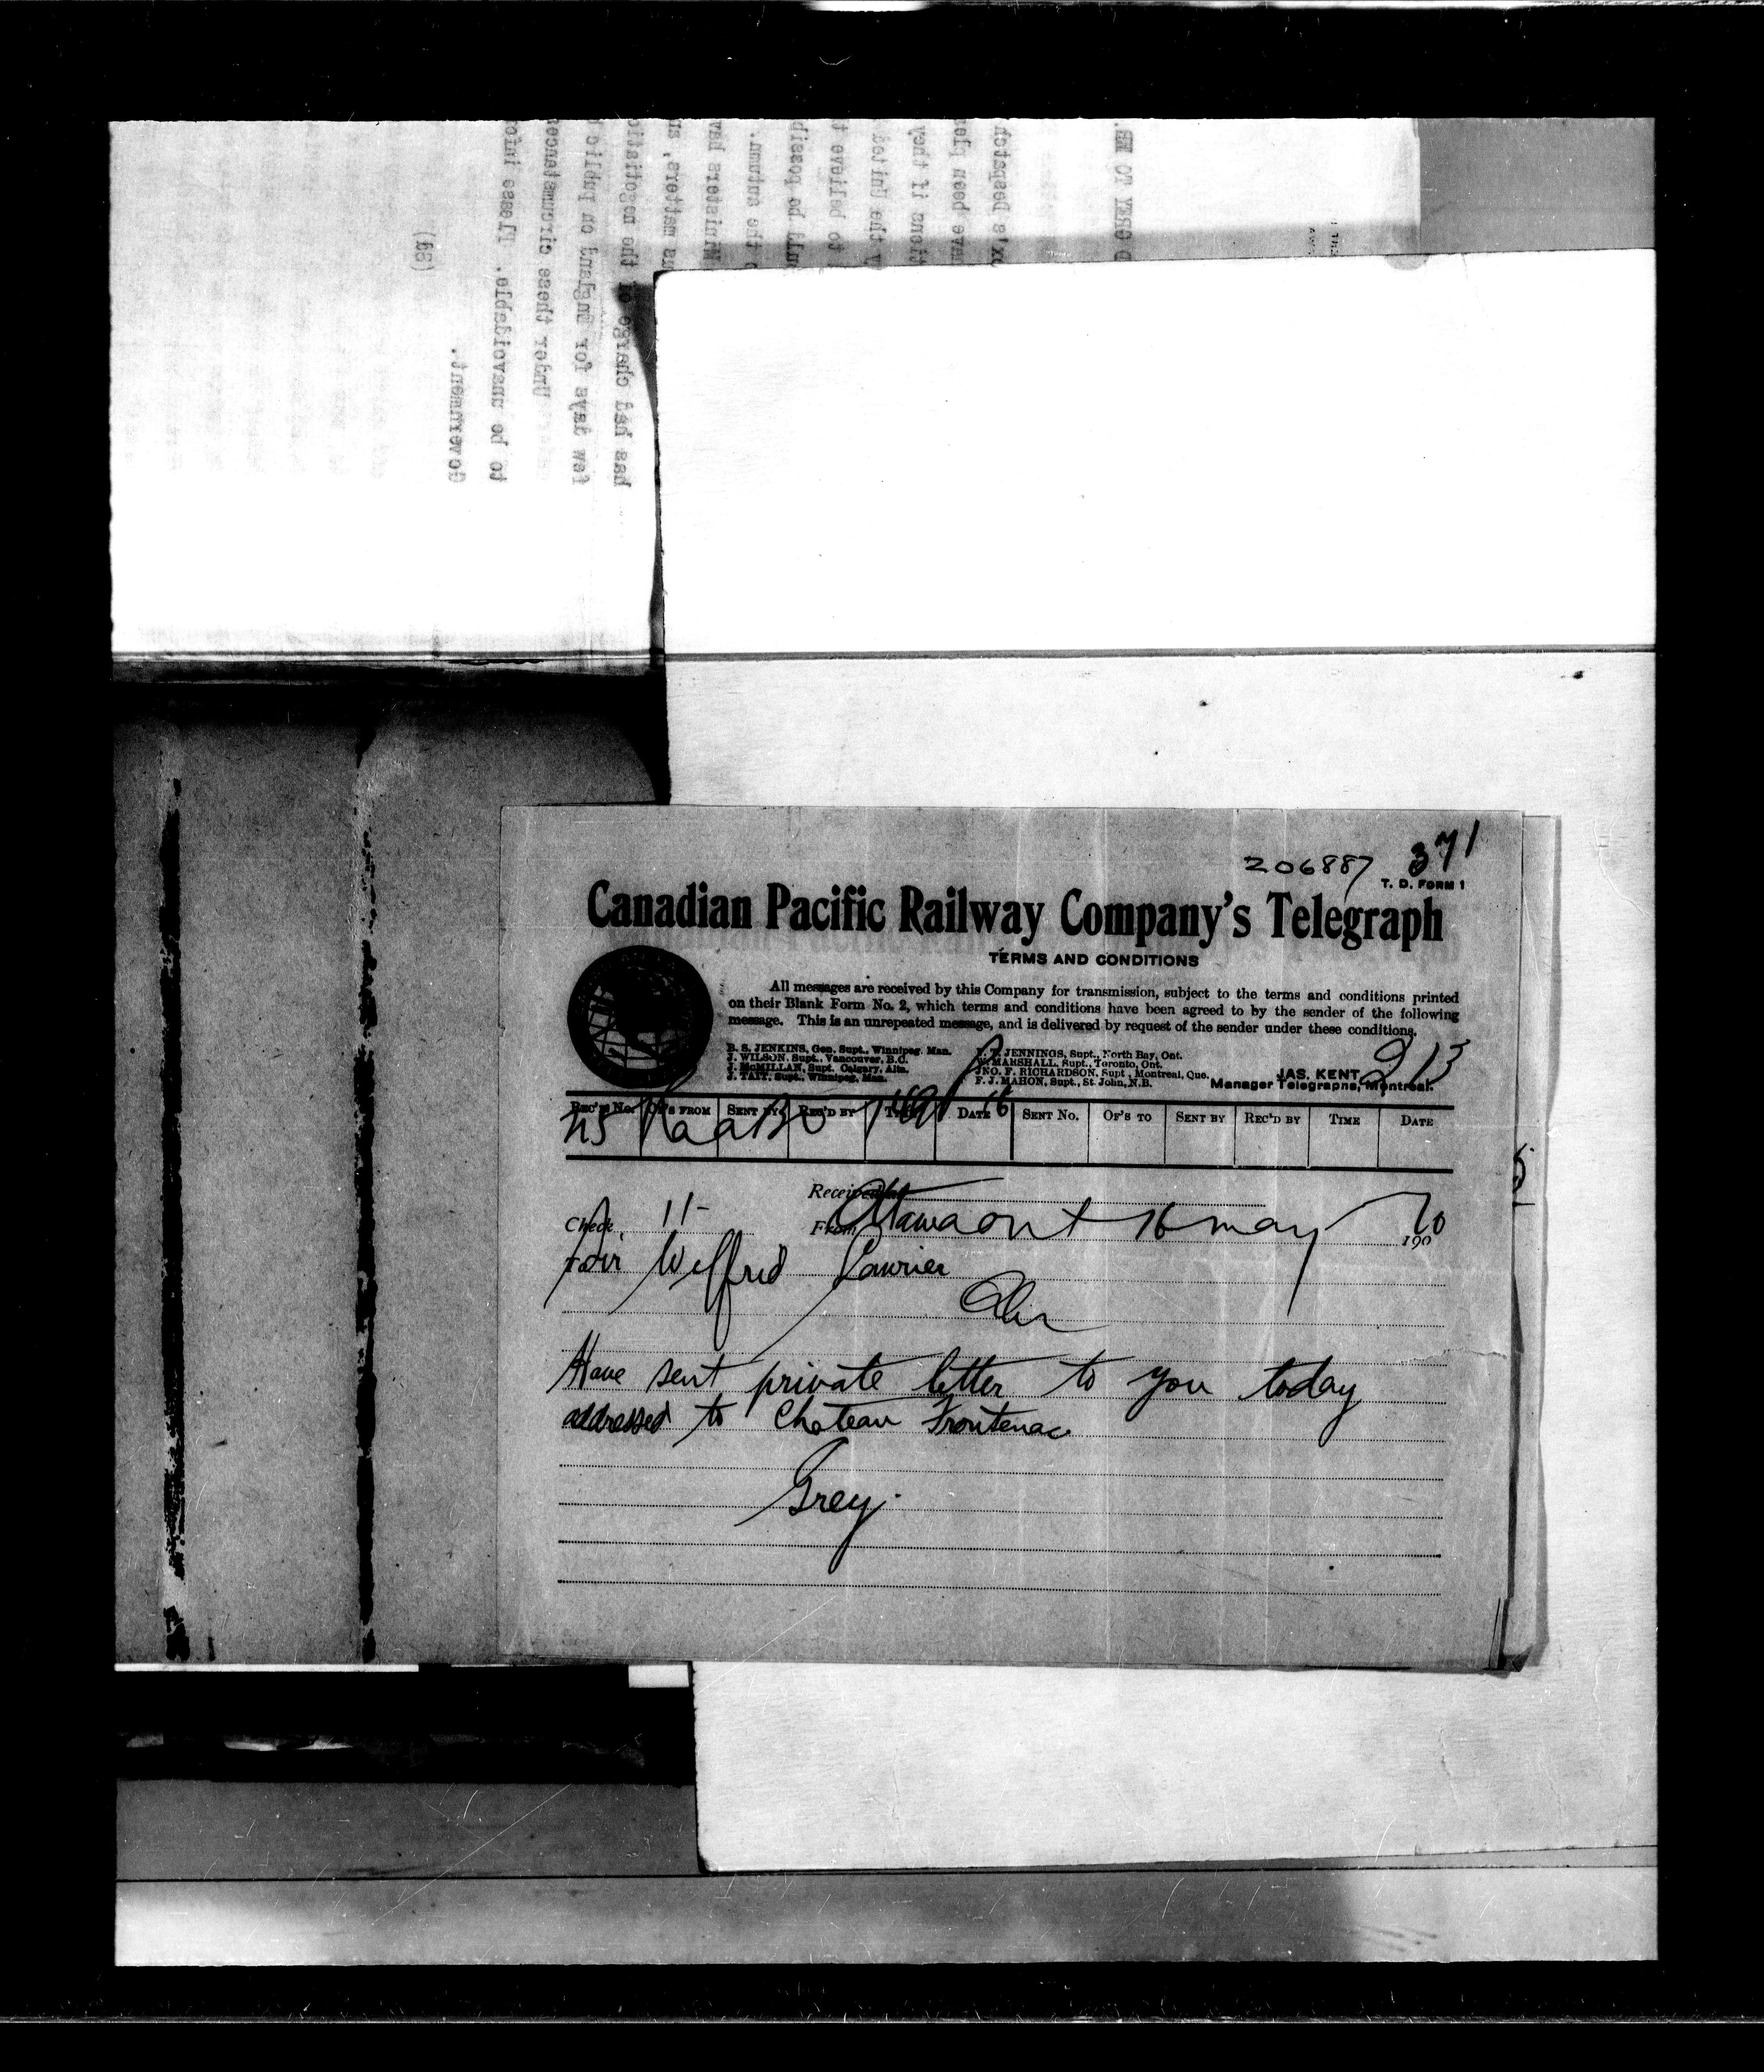 206887 371
T. D. FORM 1
Canadian Pacific Railway Company's Telegraph
TERMS AND CONDITIONS
All messages are received by this Company for transmission, subject to the terms and conditions printed
on their Blank Form No. 2, which terms and conditions have been agreed to by the sender of the following
message. This is an unrepeated message, and is delivered by request of the sender under these conditions.
B. S. JENKINS, Gen. Supt., Winnipeg, Man.
J. WILSON, Supt., Vancouver, B.C.
J. McMILLAN, Supt. Calgary, Alta.
J. TAIT, Supt., Winnipeg, Man.
JENNINGS, Supt., North Bay, Ont.
W. MARSHALL, Supt., Toronto, Ont.
JNO. F. RICHARDSON, Supt., Montreal, Que.
F. J. MAHON, Supt., St. John, N.B.
JAS. KENT,
Manager Telegraphs, Montreal.
213
REC'D No. OF'S FROM SENT BY REC'D BY TIME DATE SENT No. OF'S TO SENT BY REC'D BY TIME DATE
16
Received at
Check 11- From Ottawa Ont 16 may 1900 10
To Sir Wilfrid Laurier
Have sent private letter to you today
addressed to Chateau Frontenac
Grey.
Government.
to be unavoidable. Please info
Under these circumstances
few days for England on public b
has had charge of the negotiatio
(Sd)